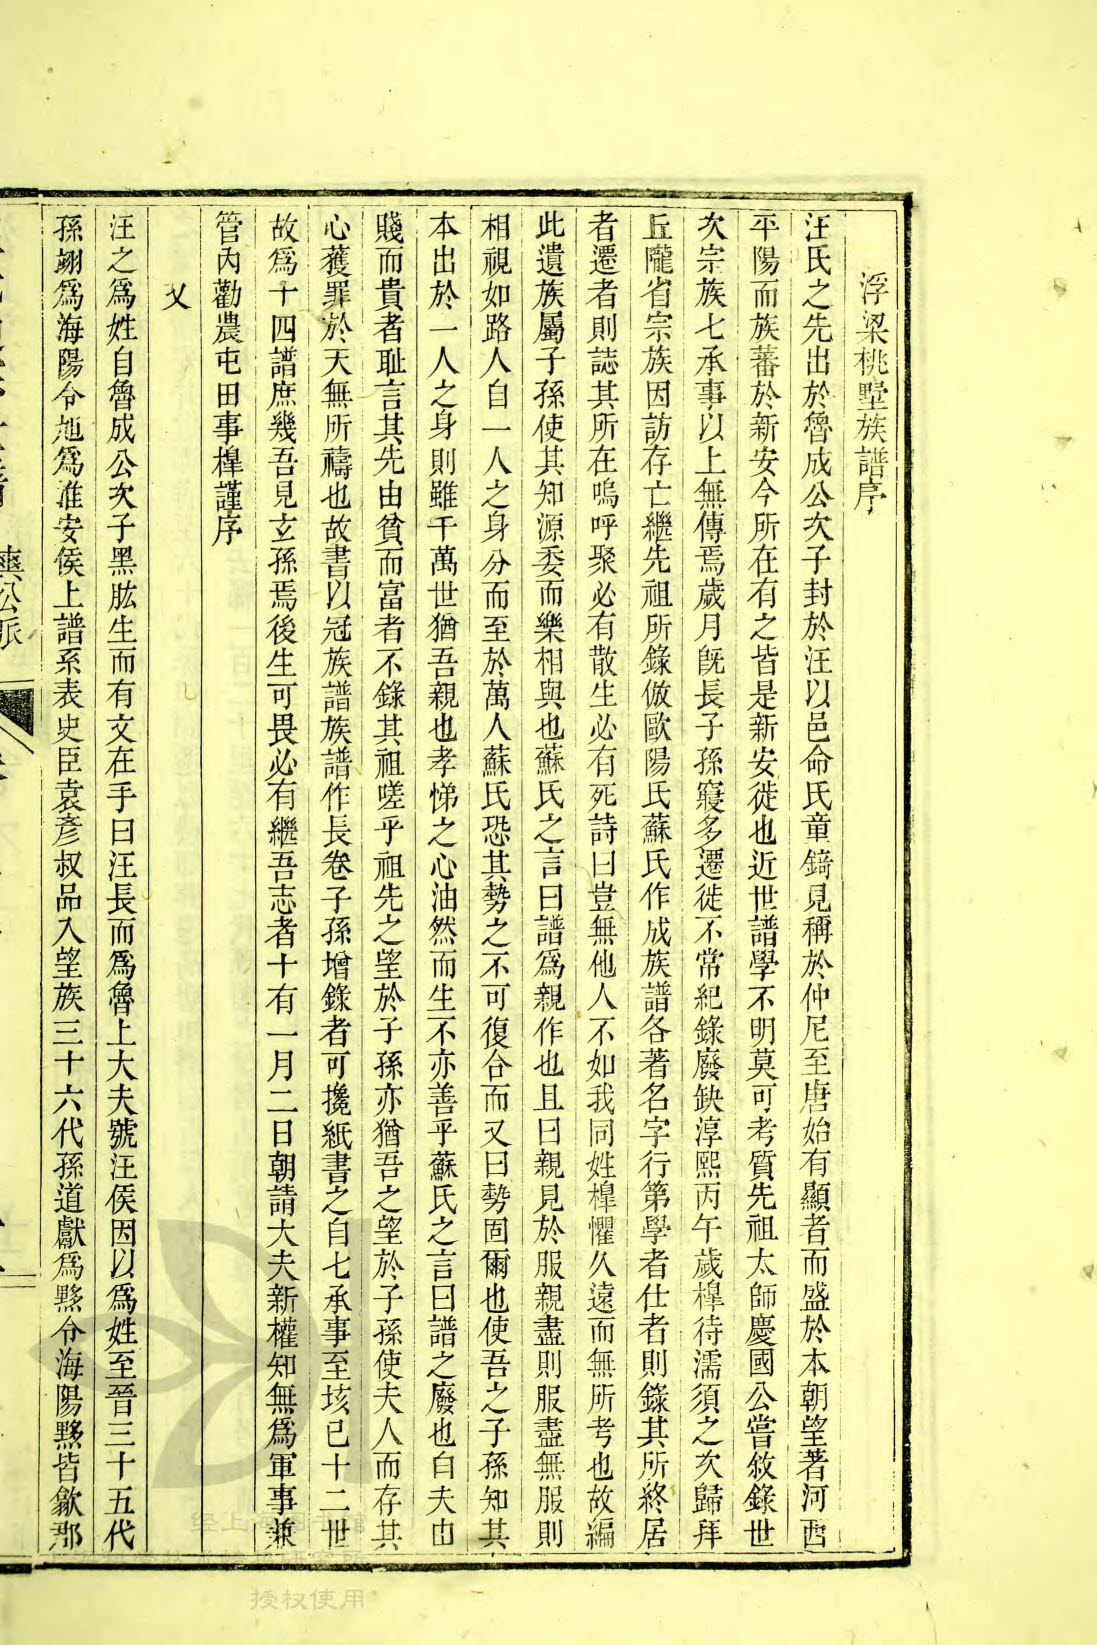 浮梁桃墅族譜序
汪氏之先出於魯成公次子封於汪以邑命氏童錡見稱於仲尼至唐始有顯者而盛於本朝望著河西
平陽而族蕃於新安今所在有之皆是新安徙也近世譜學不明莫可考質先祖太師慶國公嘗敘錄世
次宗族七承事以上無傳焉歲月旣長子孫寖多遷徙不常紀錄廢缺淳熙丙午歲楻待濡須之次歸拜
丘隴省宗族因訪存亡繼先祖所錄倣歐陽氏蘇氏作成族譜各著名字行第學者仕者則錄其所終居
者遷者則誌其所在嗚呼聚必有散生必有死詩曰豈無他人不如我同姓楻懼久遠而無所考也故編
此遺族屬子孫使其知源委而樂相與也蘇氏之言曰譜爲親作也且曰親見於服親盡則服盡無服則
相視如路人自一人之身分而至於萬人蘇氏恐其勢之不可復合而又曰勢固爾也使吾之子孫知其
本出於一人之身則雖千萬世猶吾親也孝悌之心油然而生不亦善乎蘇氏之言曰譜之廢也自夫由
賤而貴者耻言其先由貧而富者不錄其祖嗟乎祖先之望於子孫亦猶吾之望於子孫使夫人而存其
心蓷罪於天無所禱也故書以冠族譜族譜作長卷子孫增錄者可攙紙書之自七承事至垓已十二世
故爲十四譜庶幾吾見玄孫焉後生可畏必有繼吾志者十有一月二日朝請大夫新權知無爲軍事兼
管內勸農屯田事楻謹序
又
汪之爲姓自魯成公次子黑肱生而有文在手曰汪長而爲魯上大夫號汪侯因以爲姓至晉三十五代
孫翊爲海陽令旭爲淮安侯上譜系表史臣袁彥叔品入望族三十六代孫道獻爲黟令海陽黟皆歙郡
爽公派
经上海图书馆
授权使用